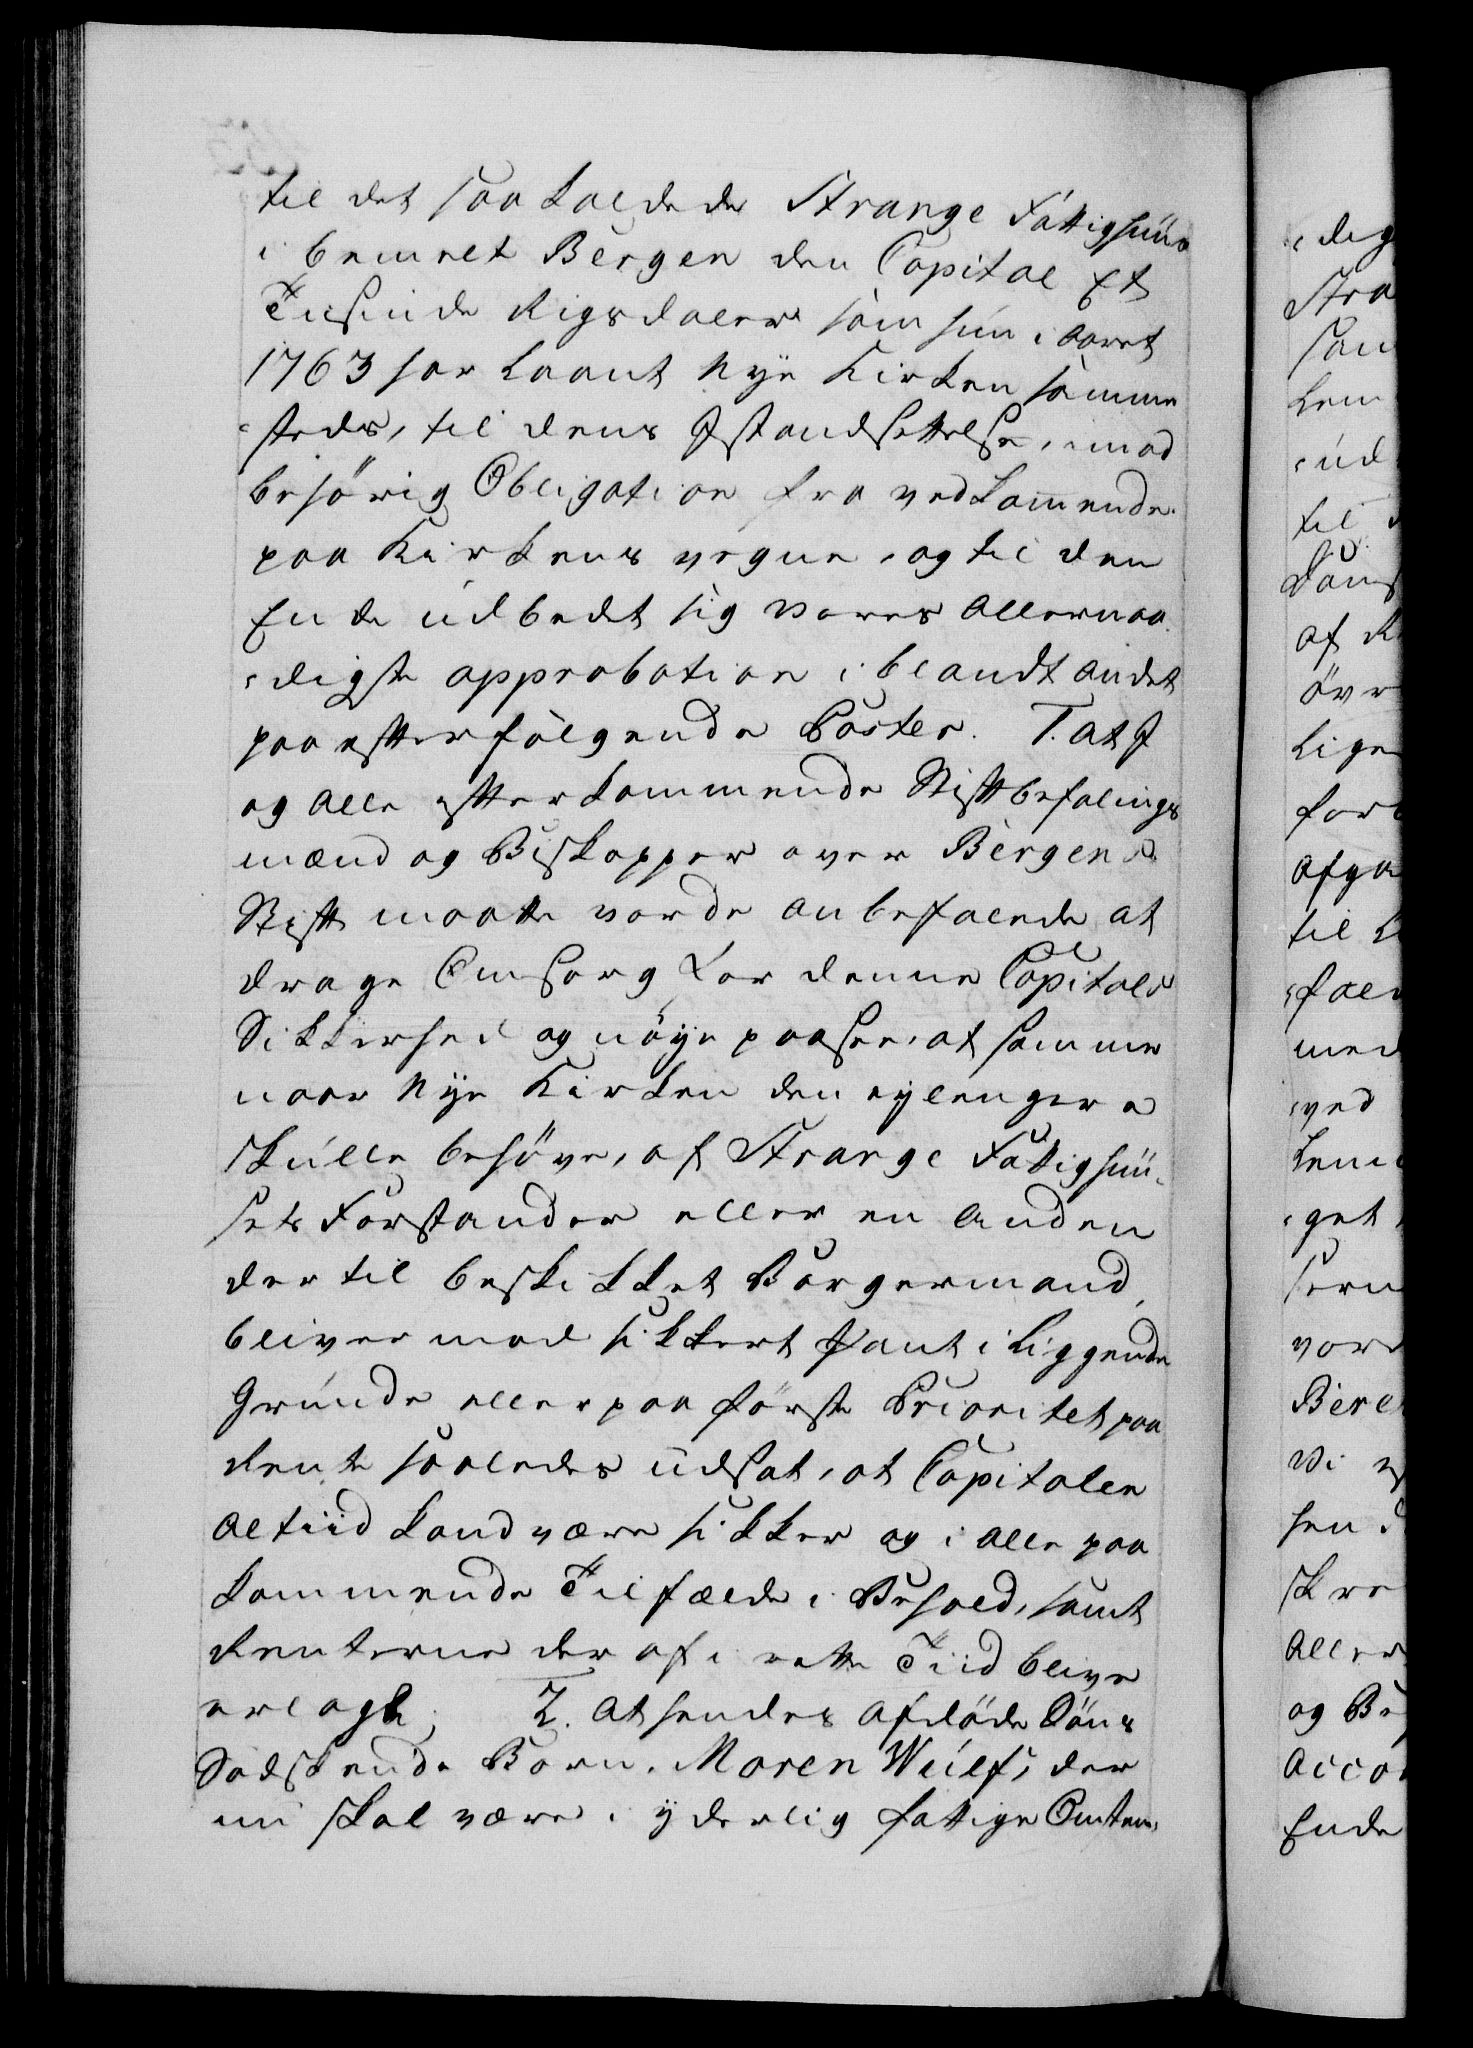 til det saa kaldede Strange Fattighuus
i bemelt Bergen den Capital Et
Tusinde Rigsdaler som hun i Aaret
1763 har laant Nye Kirken samme
steds, til dens Istandsættelse, imod
behörig Obligation fra vedkommende
paa Kirkens vegne, og til den
Ende udbedt sig Vores Allernaa¬
digste approbation i blandt andet
paa efterfölgende Poster. 1. at I
og alle efterkommende Stiftbefalings
mænd og Biskopper over Bergens
Stift maatte vorde anbefalede at
drage Omsorg for denne Capitals
Sikkerhed og nöye paasee, at samme
naar Nye Kirken den ey lengere
skulle behöve, af Strange Fattighuu¬
sets Forstander eller en anden
dertil beskikket Borgermand,
bliver mod sikkert Pant i liggende
Grunde eller paa förste Prioritet paa
Rente saaledes udsat, at Capitalen
altiid kand være sikker og i alle paa
kommende Tilfælde i Behold, samt
Renterne deraf i rette Tiid blive
erlagt; 2. At hendes afdöde Söns
Sødskende Barn, Maren Wulf, der
nu skal være i yderlig fattige Omstæn¬
dig
Stra
som
lem
ud
til
af
övr
lige
for
til
med
ved
get
vore
Vi
skre
Aller
og
Ende